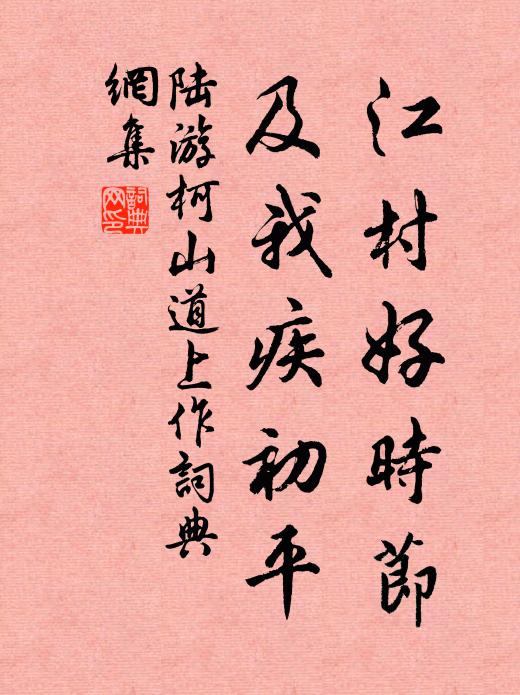 江村好時節
及我疾初平
陆游柯山道上作詞典
網集
詞典
网印